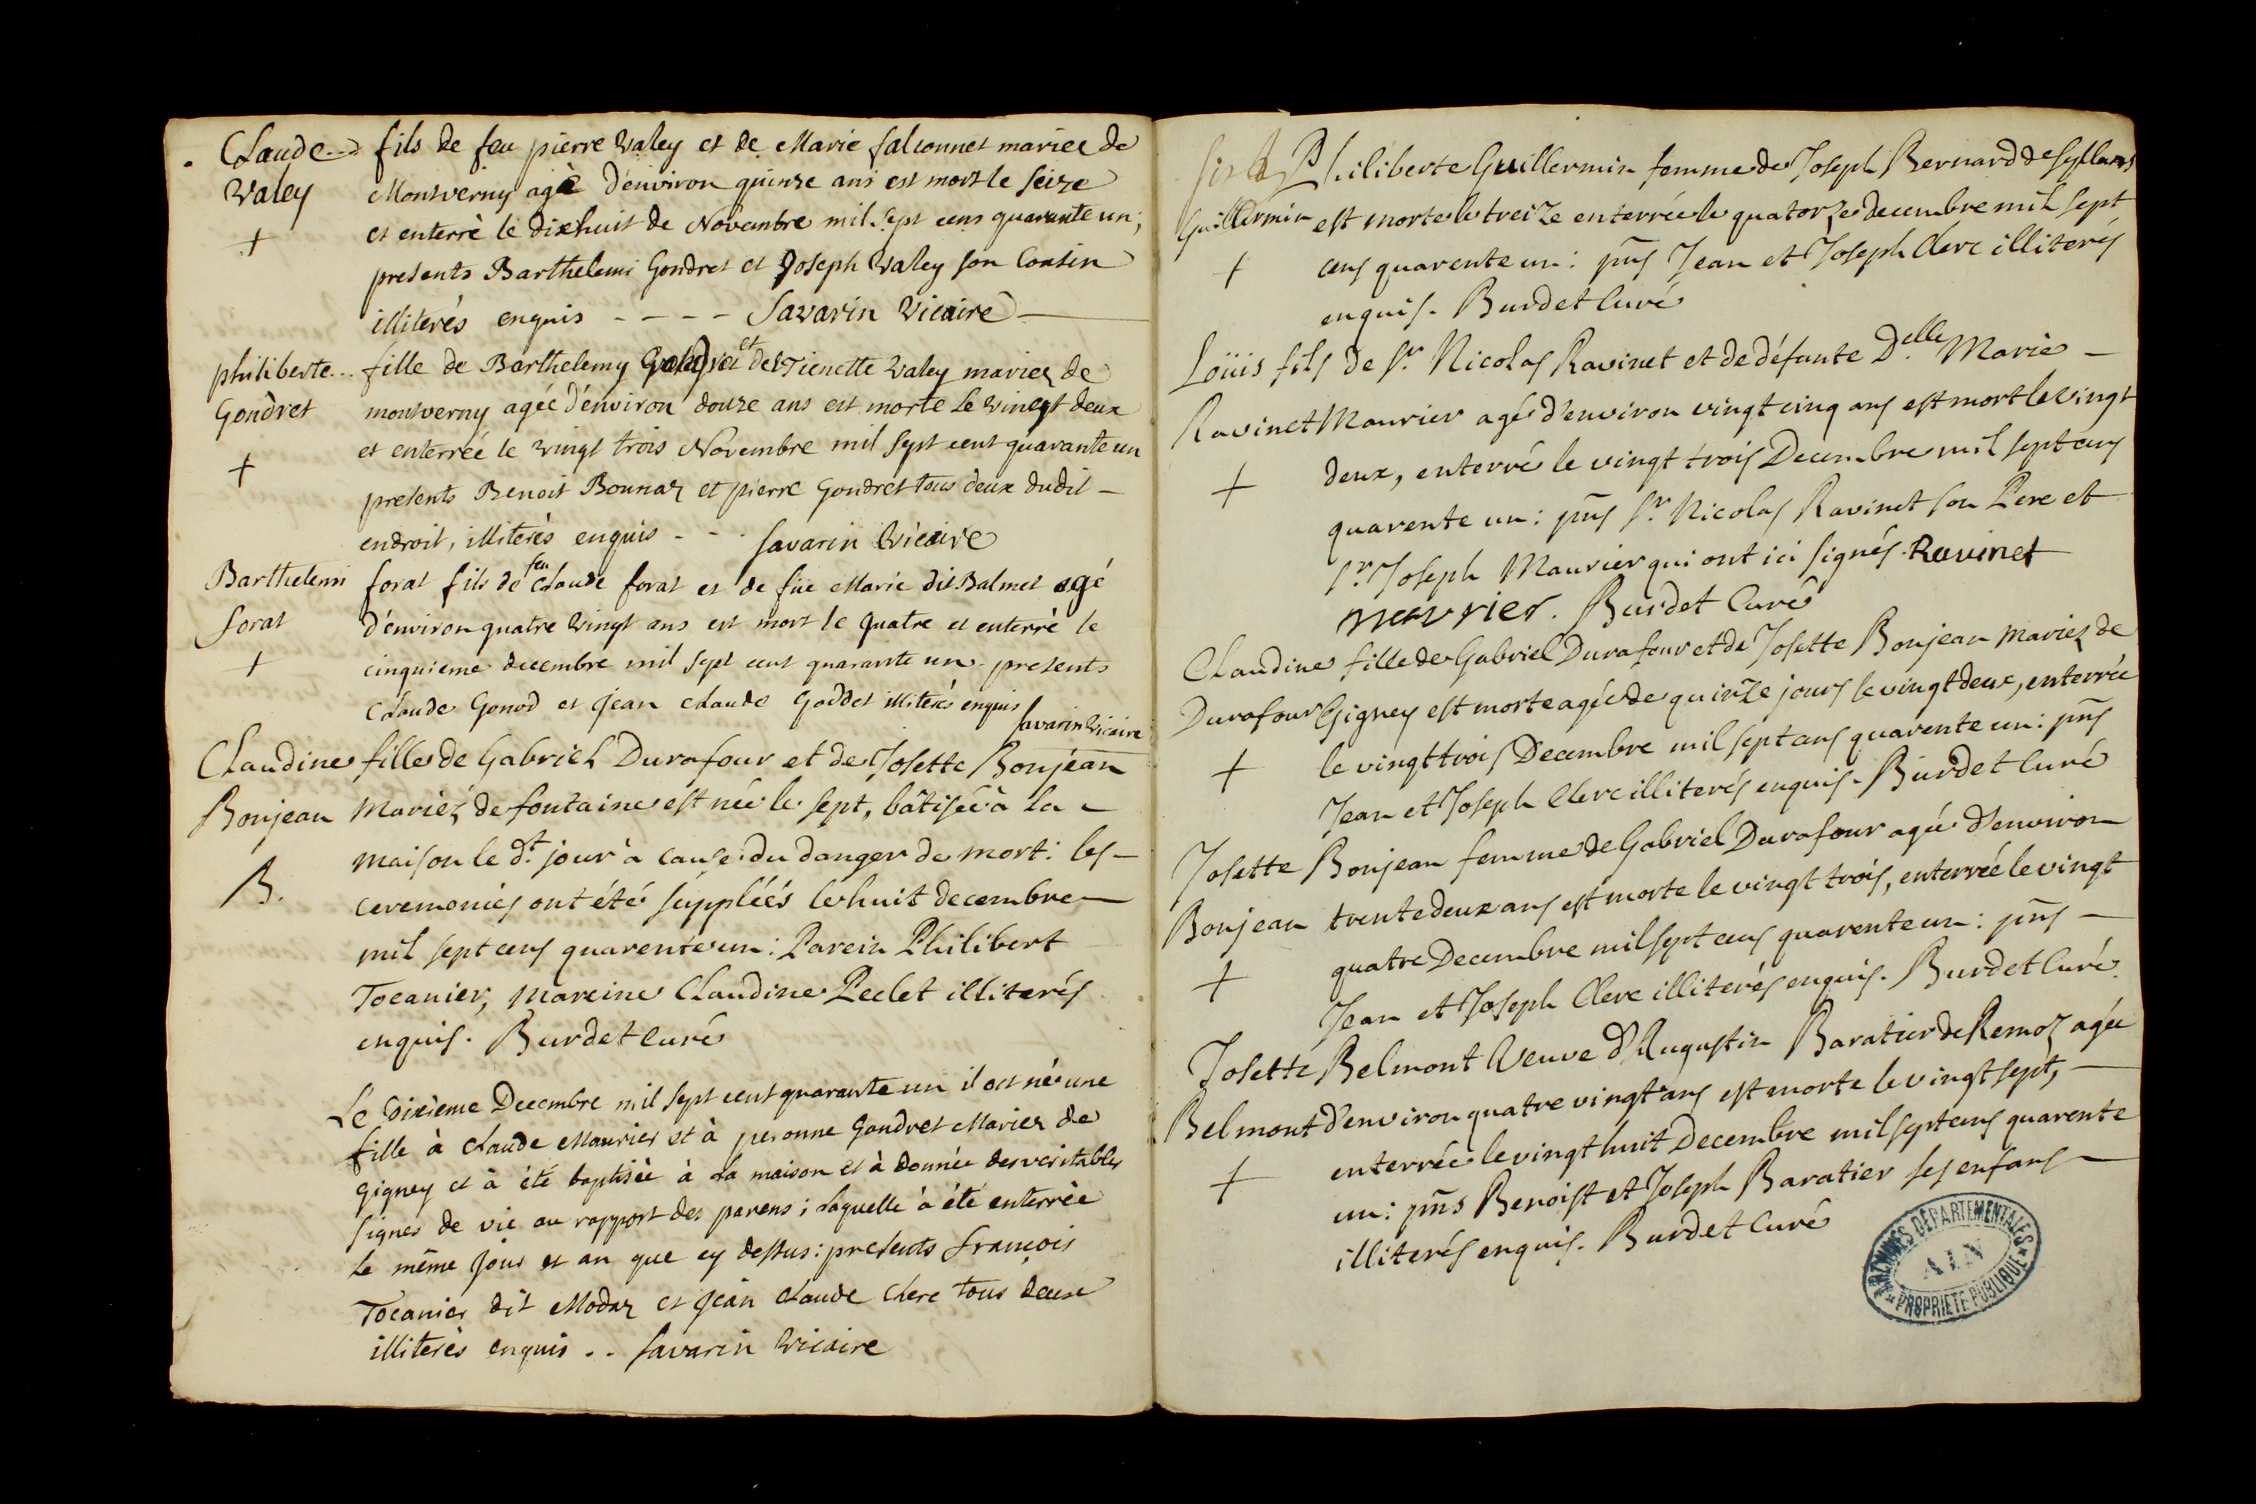 Claude fils de feu pierre Valey et de Marie falconnet mariez de
Valey Montverny agé d'environ quinze ans est mort le seize
+ et enterré le dixhuit de Novembre mil sept cens quarante un;
presents Barthelemi Gondret et Joseph Valey son Cousin
illiterés enquis - - - - Savarin Vicaire
philiberte fille de Barthelemy Gondret et de Vienette Valey mariez de
Gondret montverny agée d'environ douze ans est morte le vingt deux
et enterrée le vingt trois Novembre mil sept cent quarante un
+ presents Benoit Bonnaz et pierre Gondret tous deux dudit
endroit, illiterés enquis - - savarin Vicaire
Barthelemi forat fils de feu Claude forat et de füe Marie dit Balmet agé
forat d'environ quatre vingt ans est mort le quatre et enterré le
+ cinquieme decembre mil sept cent quarante un presents
Claude Gonod et Jean claude Goddet illiterés enquis
savarin Vicaire
Claudine fille de Gabriel Durafour et de Josette Bonjean
Bonjean Mariéz de fontaine est née le sept, bâtisée à la
maison le d.t jour à cause du danger de mort: les
B. ceremonies ont été suppléés le huit decembre
mil sept cens quarente un: Parein Philibert
Tocanier, mareine Claudine Peclet illiterés
enquis. Burdet Curé
Le dixieme Decembre mil sept cent quarante un il est né une
fille à Claude Maurier et à peronne Gondret Mariez de
Gigney et à été baptisée à la maison et à donnée des veritables
signes de vie au rapport des parens; laquelle à été enterrée
le même jour et an que cy dessus: presents françois
Tocanier dit Modaz et Jean Claude Clerc tous deux
illiterés enquis . . savarin Vicaire
Philiberte Guillermin femme de Joseph Bernard de
Guillermin est morte le treize enterrée le quatorze decembre mil sept
+ cens quarente un: pñs Jean et Joseph Clerc illiterés
enquis. Burdet Curé
Loüis fils de Sr. Nicolas Ravinet et de défunte D.elle Marie
Ravinet Maurier agé d'environ vingt cinq ans est mort le vingt
+ deux, enterré le vingt trois Decembre mil sept cens
quarente un: pñs Sr. Nicolas Ravinet son Pere et
Sr. Joseph Maurier qui ont ici signés. Ravinet
mavrier. Burdet Curé
Claudine fille de Gabriel Durafour et de Josette Bonjean mariez de
Durafour Gigney est morte agée de quinze jours le vingt deux, enterrée
+ le vingt trois Decembre mil sept cens quarente un: pñs
Jean et Joseph Clerc illiterés enquis. Burdet Curé
Josette Bonjean femme de Gabriel Durafour agée d'environ
Bonjean trente deux ans est morte le vingt trois, enterrée le vingt
+ quatre Decembre mil sept cens quarente un: pñs
Jean et Joseph Clerc illiterés enquis. Burdet Curé
Josette Belmont Veuve d'Augustin Baratier de Remoz agée
Belmont d'environ quatre vingt ans est morte le vingt sept,
+ enterrée le vingt huit Decembre mil sept cens quarente
un: pñs Benoist et Joseph Baratier ses enfans
illiterés enquis. Burdet Curé
ARCHIVES DÉPARTEMENTALES
AIN
PROPRIÉTÉ PUBLIQUE